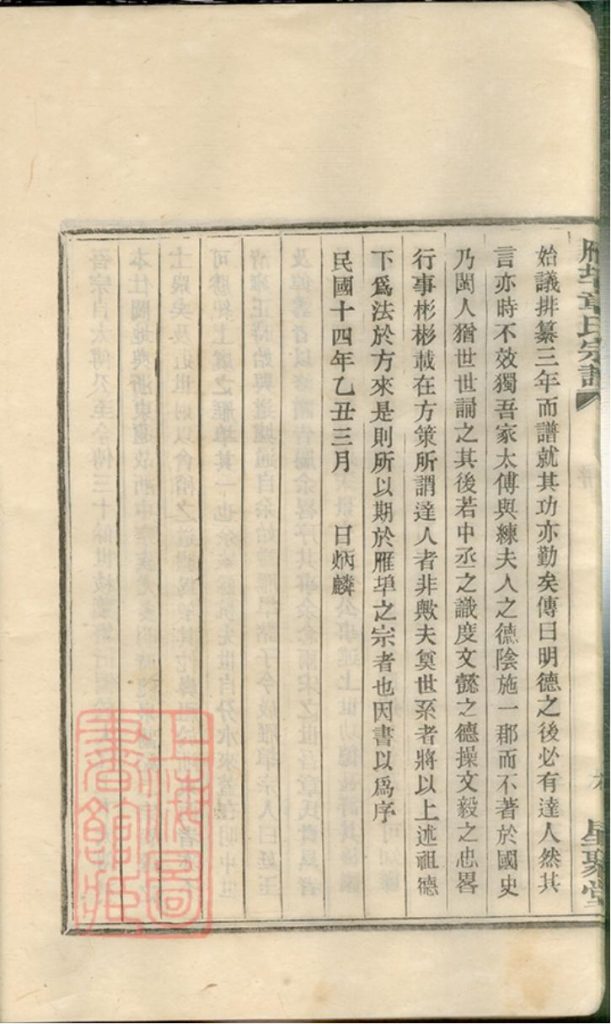 雁埠章氏宗譜
星聚堂
始議排纂三年而譜就其功亦勤矣傳曰明德之後必有達人然其
言亦時不效獨吾家太傅與練夫人之德陰施一郡而不著於國史
乃閩人猶世世誦之其後若中丞之識度文懿之德操文毅之忠畧
行事彬彬載在方策所謂達人者非歟夫奠世系者將以上述祖德
下爲法於方來是則所以期於雁埠之宗者也因書以爲序
民國十四年乙丑三月　日炳麟
上海圖書館藏